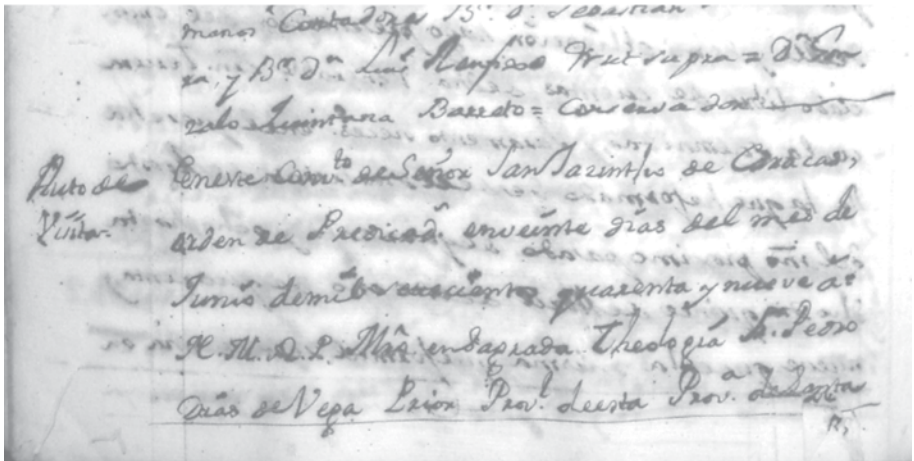 manos Contadora Br. D. Sebastian
ra, y Br. Dn. Luis Renfieso Wut supra = Dn. Gon
zalo Quintana Barreto = Conserva dor
Auto de
Visita.
En este Convto. de Señor San Jazintho de Caracas,
orden de Predicad.s en veinte dias del mes de
Junio de mil setecientos quarenta y nueve as.
N. M. R. P. Mrô. en Sagrada Theologia fr. Pedro
Dias de Vega Prior Prov.l de esta Prov.a de Santa